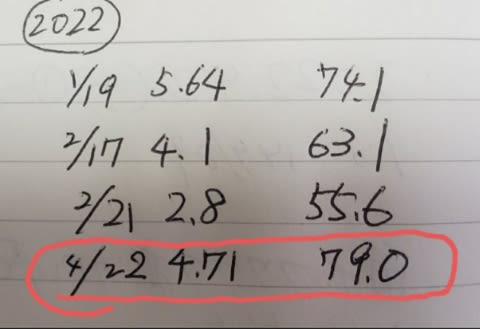 2022
1/19 5.64 74.1
2/17 4.1 63.1
2/21 2.8 55.6
4/22 4.71 79.0